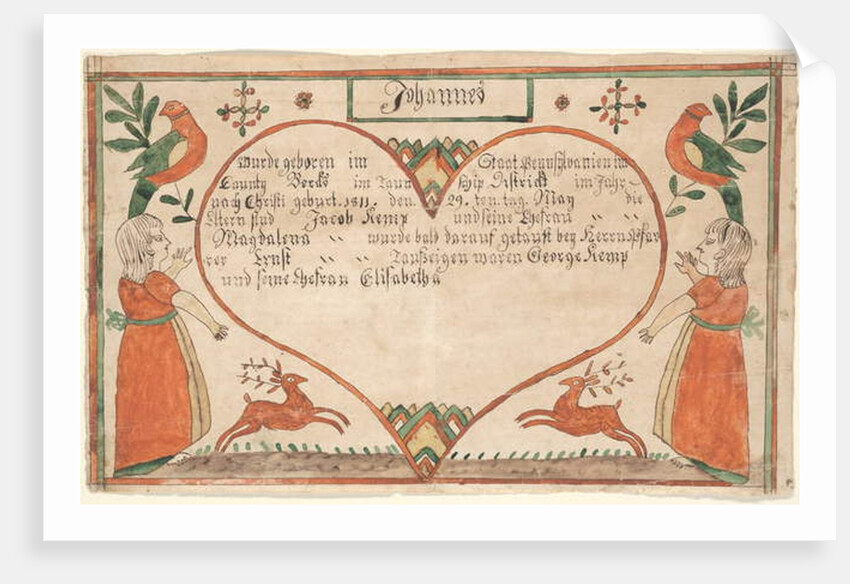 Johannes
Wurde geboren im Staat Pennsylvanien im
County Bercks im Taun ship District im Jahr-
nach Christi geburt. 1811. den. 29. ten. tag. May die
Eltern sind Jacob Kemp und seine Ehefrau " "
Magdalena " " wurde bald darauf getauft bey Herrn Pfar
rer Ernst " " Taufzeigen waren George Kemp
und seine Ehefrau Elisabetha